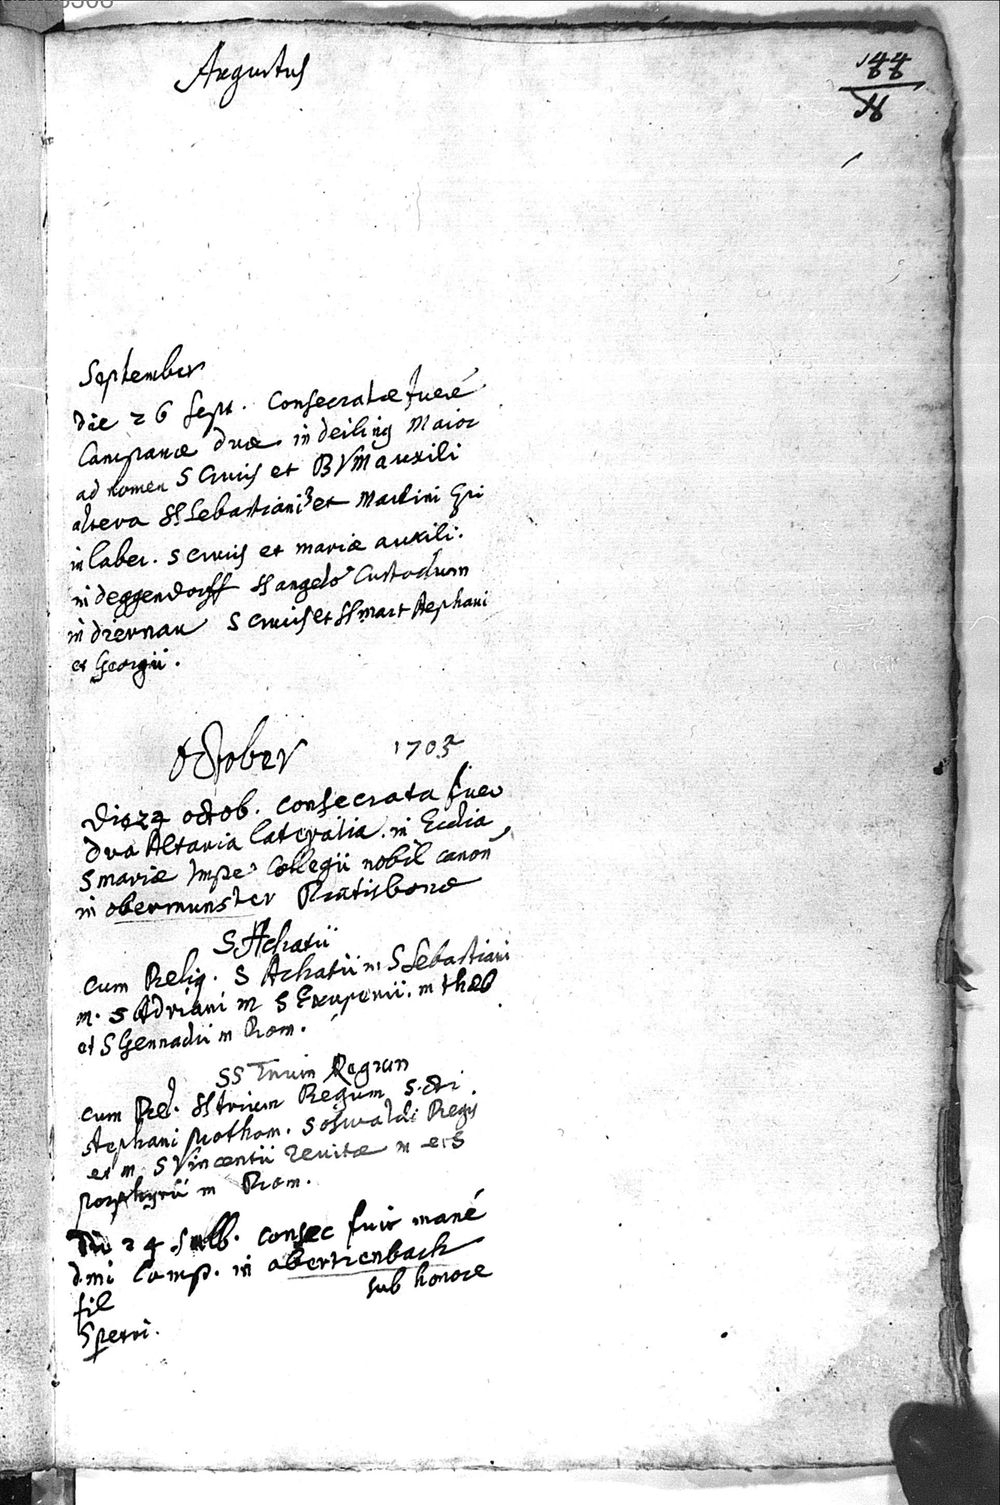 Augustus
September
die 26 Sept. Consecratae fuere
Campanae duae. in deiling Maior
ad nomen S Crucis et BVM auxili
altera SS Sebastiani et Martini Epi
in laber. S Crucis et mariae auxili.
in deggendorff SS angelo Custodum
in diernau S Crucis et SS mart Stephani
et Georgii.
October 1703
Die 24 octob. consecrata fuer
duo Altaria lateralia. in Ecclia
S mariae Impe Collegii nobil canon
in obermunster Ratisbonae
S Achatii
cum Reliq. S Achatii m S Sebastiani
m. S Adriani m S Exuperii. m theb
et S Gennadii m Rom.
SS Trium Regum
cum Rel. SS trium Regum S.cti
Stephani prothom. S Oswaldi Regis
et m S Vincentii levitae m et S
porphyrii m Rom.
Die 24 consec fuit mane
Camp. in
sub honore
fil
S petri.